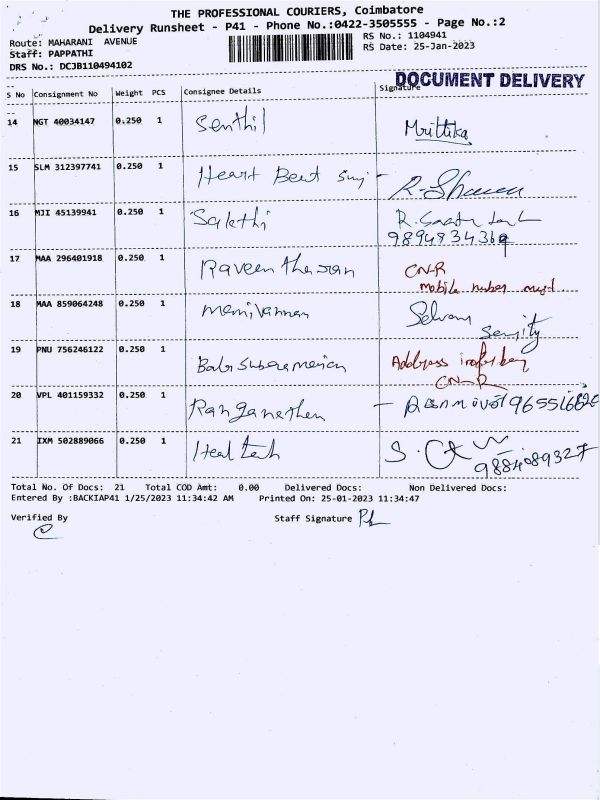 THE PROFESSIONAL COURIERS, Coimbatore
Delivery Runsheet - P41 - Phone No.:0422-3505555 - Page No.:2
Route: MAHARANI AVENUE
RS No.: 1104941
Staff: PAPPATHI
RS Date: 25-Jan-2023
DRS No.: DCJB110494102
DOCUMENT DELIVERY
S No Consignment No Weight PCS Consignee Details Signature
14 NGT 40034147 0.250 1 Senthil Mrittika
15 SLM 312397741 0.250 1 Heart Beat
16 MJI 45139941 0.250 1 Sakthi
17 MAA 296401918 0.250 1 CN-R
mobile
18 MAA 859064248 0.250 1 Manivannan Selvam
19 PNU 756246122 0.250 1 Address
CN-R
20 VPL 401159332 0.250 1 Ranganathan
21 IXM 502889066 0.250 1 Heal tech
9884089327
Total No. Of Docs: 21 Total COD Amt: 0.00 Delivered Docs: Non Delivered Docs:
Entered By :BACKIAP41 1/25/2023 11:34:42 AM Printed On: 25-01-2023 11:34:47
Verified By Staff Signature